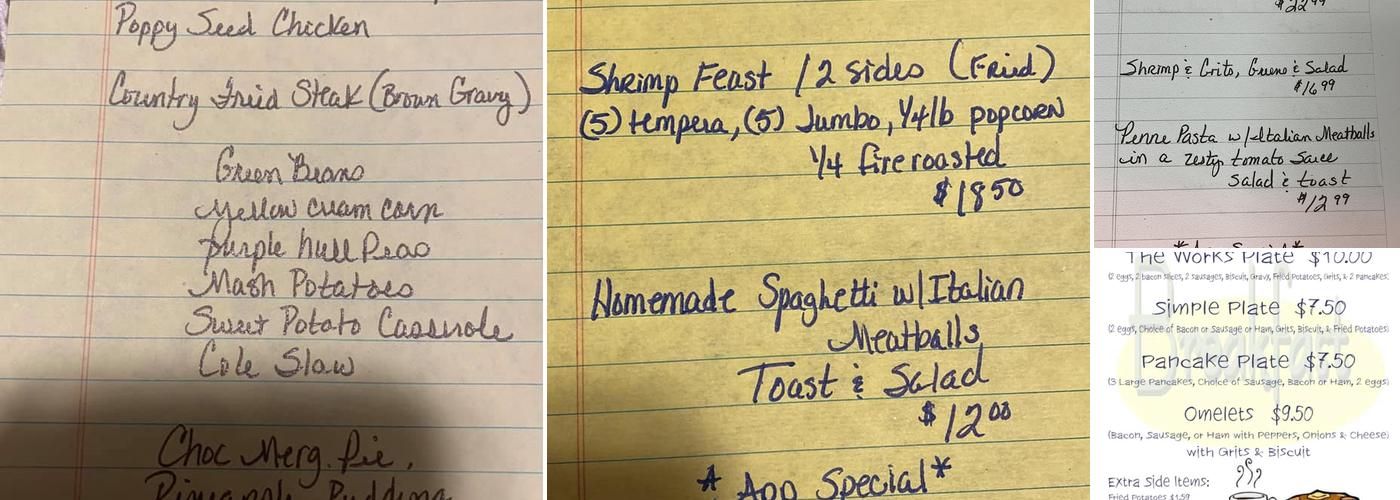 Poppy Seed Chicken
Country Fried Steak (Brown Gravy)
Green Beans
Yellow Cream Corn
Purple hull Peas
Mash Potatoes
Sweet Potato Casserole
Cole Slaw
Choc Merg. Pie,
Pineapple Pudding
Shrimp Feast / 2 sides (Fried)
(5) tempera, (5) Jumbo, 1/4 lb popcorn
1/4 fire roasted
$18.50
Homemade Spaghetti w/ Italian
Meatballs
Toast & Salad
$12.00
* App Special *
$22.99
Shrimp & Grits, Greens & Salad
$16.99
Penne Pasta w/ Italian Meatballs
in a zesty tomato Sauce
Salad & toast
$12.99
*App Special*
The Works Plate $10.00
(2 eggs, 2 bacon slices, 2 sausages, Biscuit, Gravy, Fried Potatoes, Grits, & 2 Pancakes)
Breakfast
Simple Plate $7.50
(2 eggs, Choice of Bacon or Sausage or Ham, Grits, Biscuit, & Fried Potatoes)
Pancake Plate $7.50
(3 Large Pancakes, Choice of Sausage, Bacon or Ham, 2 eggs)
Omelets $9.50
(Bacon, Sausage, or Ham with Peppers, Onions & Cheese)
with Grits & Biscuit
Extra Side Items:
Fried Potatoes $1.59